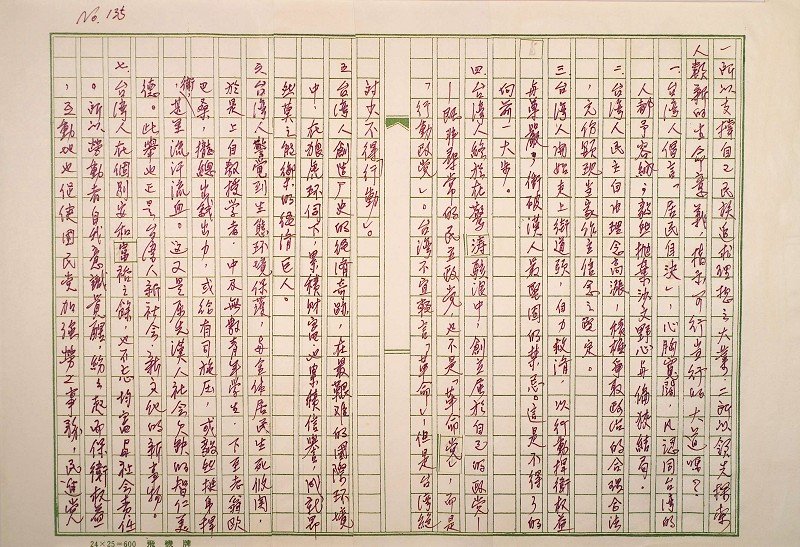 No. 135
一所以支撐自己民族追我理想之大業;二所以領先探索
人類新的生命意義,指示可行當行的大道嗎?
一、台灣人倡言「居民自決」,心胸寬闊,凡認同台灣的
人都予容納;毅然拋棄沙文野心與偏狹結局。
二、台灣人民主自由理念高漲,積極爭取政治的合理合法
,充份顯現當家作主信念之既定。
三、台灣人開始走上街道頭,自力救濟,以行動捍衛權益
與尊嚴,衝破漢人最堅固的禁忌。這是不得了的
向前一大步。
四、台灣人終於在驚濤駭浪中,創立屬於自己的政黨—
—既非尋常的民主政黨也不是「革命黨」,而是
「行動政黨」。台灣不宜輕言「革命」,但是台灣絕
對少不得「行動」。
五、台灣人創造歷史的經濟奇跡,在最艱難的國際環境
中,在狼虎環伺下,累積財富也累積信譽,成就那
些莫之能禦的經濟巨人。
六、台灣人驚覺到生態環境保護,與全体居民生死攸關,
於是上自教授學者,中及無數青年學生,下至老翁歐
巴桑,攏總出錢出力,或給有司施壓,或毅然挺身捍
衛,甚至流汗流血。這又是原先漢人社會欠缺的智仁美
德。此舉也正是台灣人新社會新文化的新事物。
七、台灣人在個別安和富裕之餘,也不忘均富與社會責任
。所以勞動者自我意識覺醒,紛紛起而保衛權益
,互動地也促使國民黨加強勞工事務,民進黨
24×25=600 飛機牌